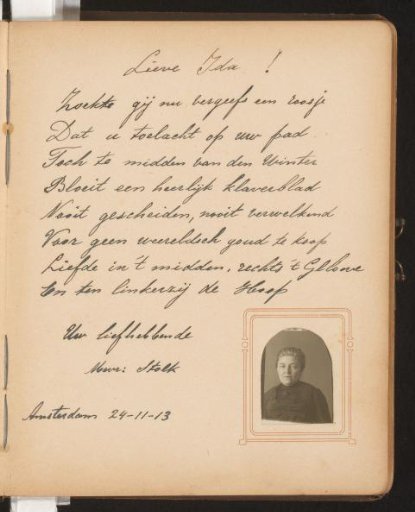 Lieve Ida !
Zochte gij nu vergeefs een roosje
Dat u toelacht op uw pad.
Toch te midden van den Winter
Bloeit een heerlijk klaverblad
Nooit gescheiden, nooit verwelkend
Voor geen wereldsch goud te koop
Liefde in 't midden, rechts 't Geloove
En ten linkerzij de Hoop
Uw liefhebbende
Mevr: Stolk
Amsterdam 24-11-13